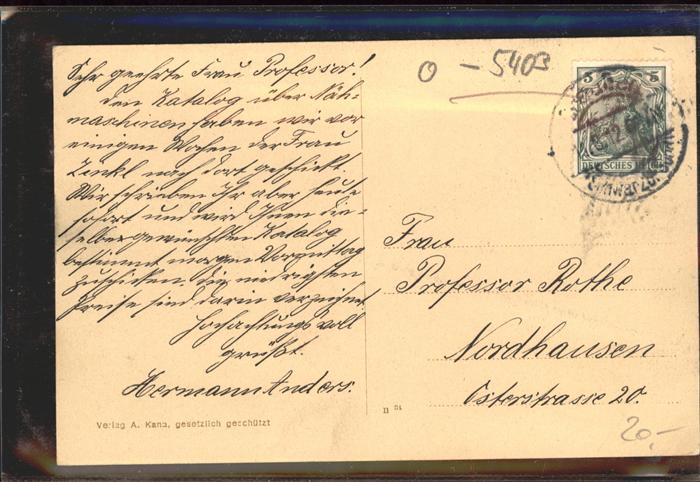 Sehr geehrte Frau Professor!
Den Katalog über Näh-
maschinen haben wir vor
einigen Wochen der Frau
Zinkl nach dort geschickt.
Wir schrieben Ihr aber heute
sofort und wird Ihnen die-
selbe gewünschten Katalog
bestimmt morgen Vormittag
zuschicken. die niedrigsten
Preise sind darin verzeichnet
Hochachtungsvoll
grüßt.
Hermann Anders.
Verlag A. Kana, gesetzlich geschützt
0 - 5403
5 5
DEUTSCHES REICH
Frau
Professor Rothe
Nordhausen
Osterstrasse 20.
II 84
20.-